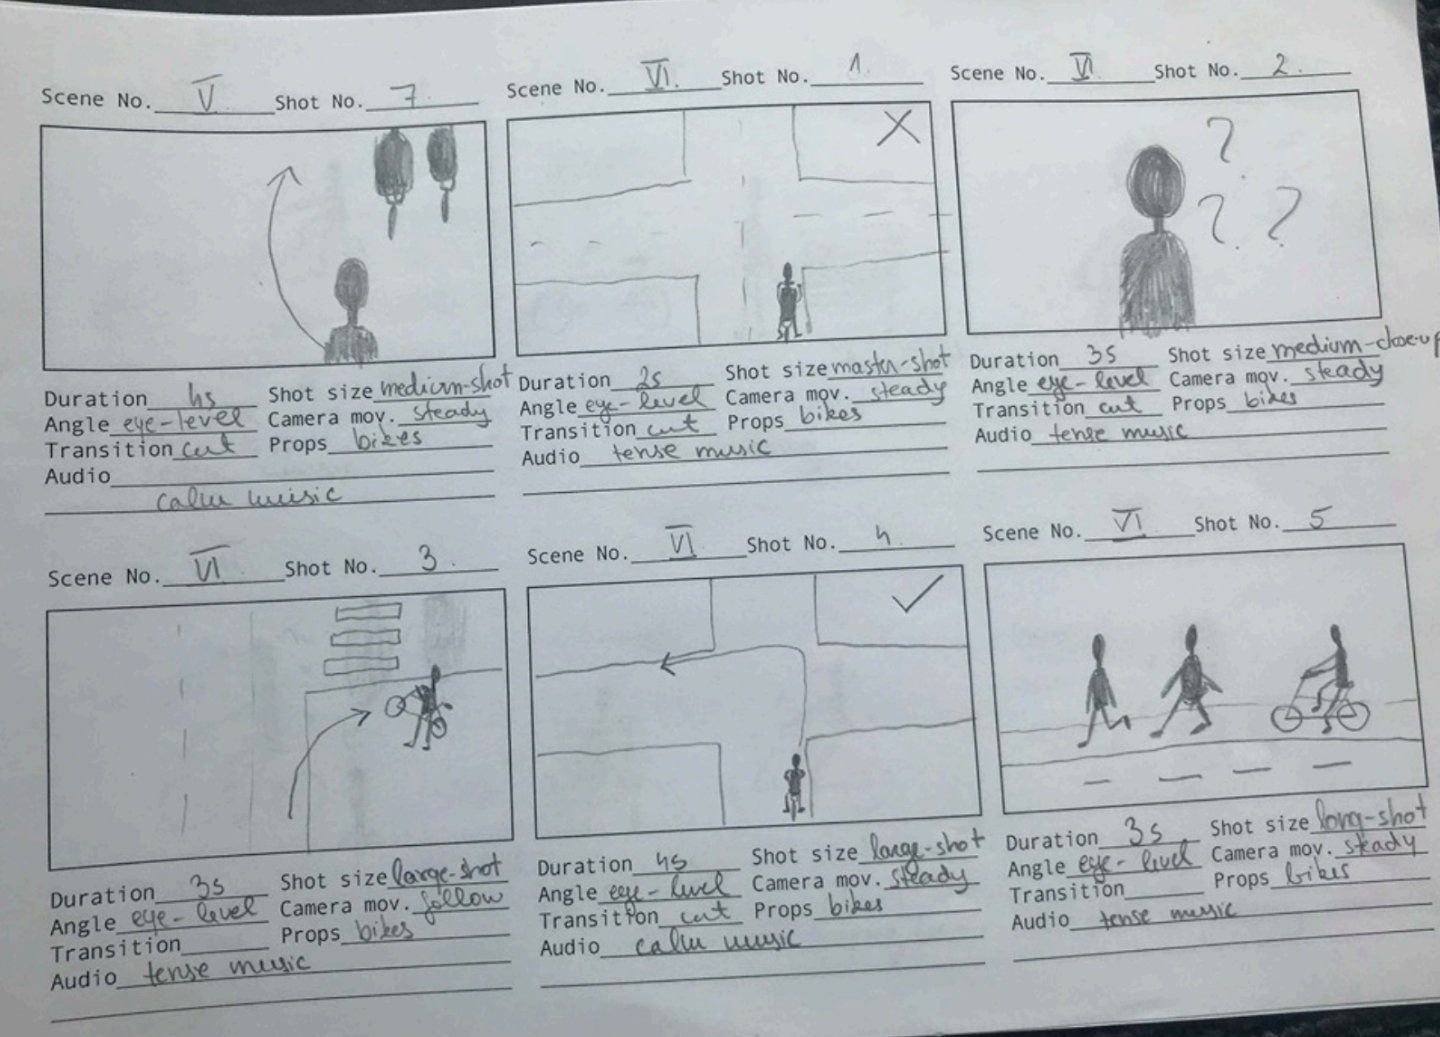 Scene No. V Shot No. 7.
Duration 4s Shot size medium-shot
Angle eye-level Camera mov. steady
Transition cut Props bikes
Audio
calm music
Scene No. VI. Shot No. 1.
X
Duration 2s Shot size master-shot
Angle eye-level Camera mov. steady
Transition cut Props bikes
Audio tense music
Scene No. VI Shot No. 2.
?
? ?
Duration 3s Shot size medium-close-up
Angle eye-level Camera mov. steady
Transition cut Props bikes
Audio tense music
Scene No. VI Shot No. 3.
Duration 3s Shot size large-shot
Angle eye-level Camera mov. follow
Transition Props bikes
Audio tense music
Scene No. VI Shot No. 4
Duration 4s Shot size large-shot
Angle eye-level Camera mov. steady
Transition cut Props bikes
Audio calm music
Scene No. VI Shot No. 5
Duration 3s Shot size long-shot
Angle eye-level Camera mov. steady
Transition Props bikes
Audio tense music